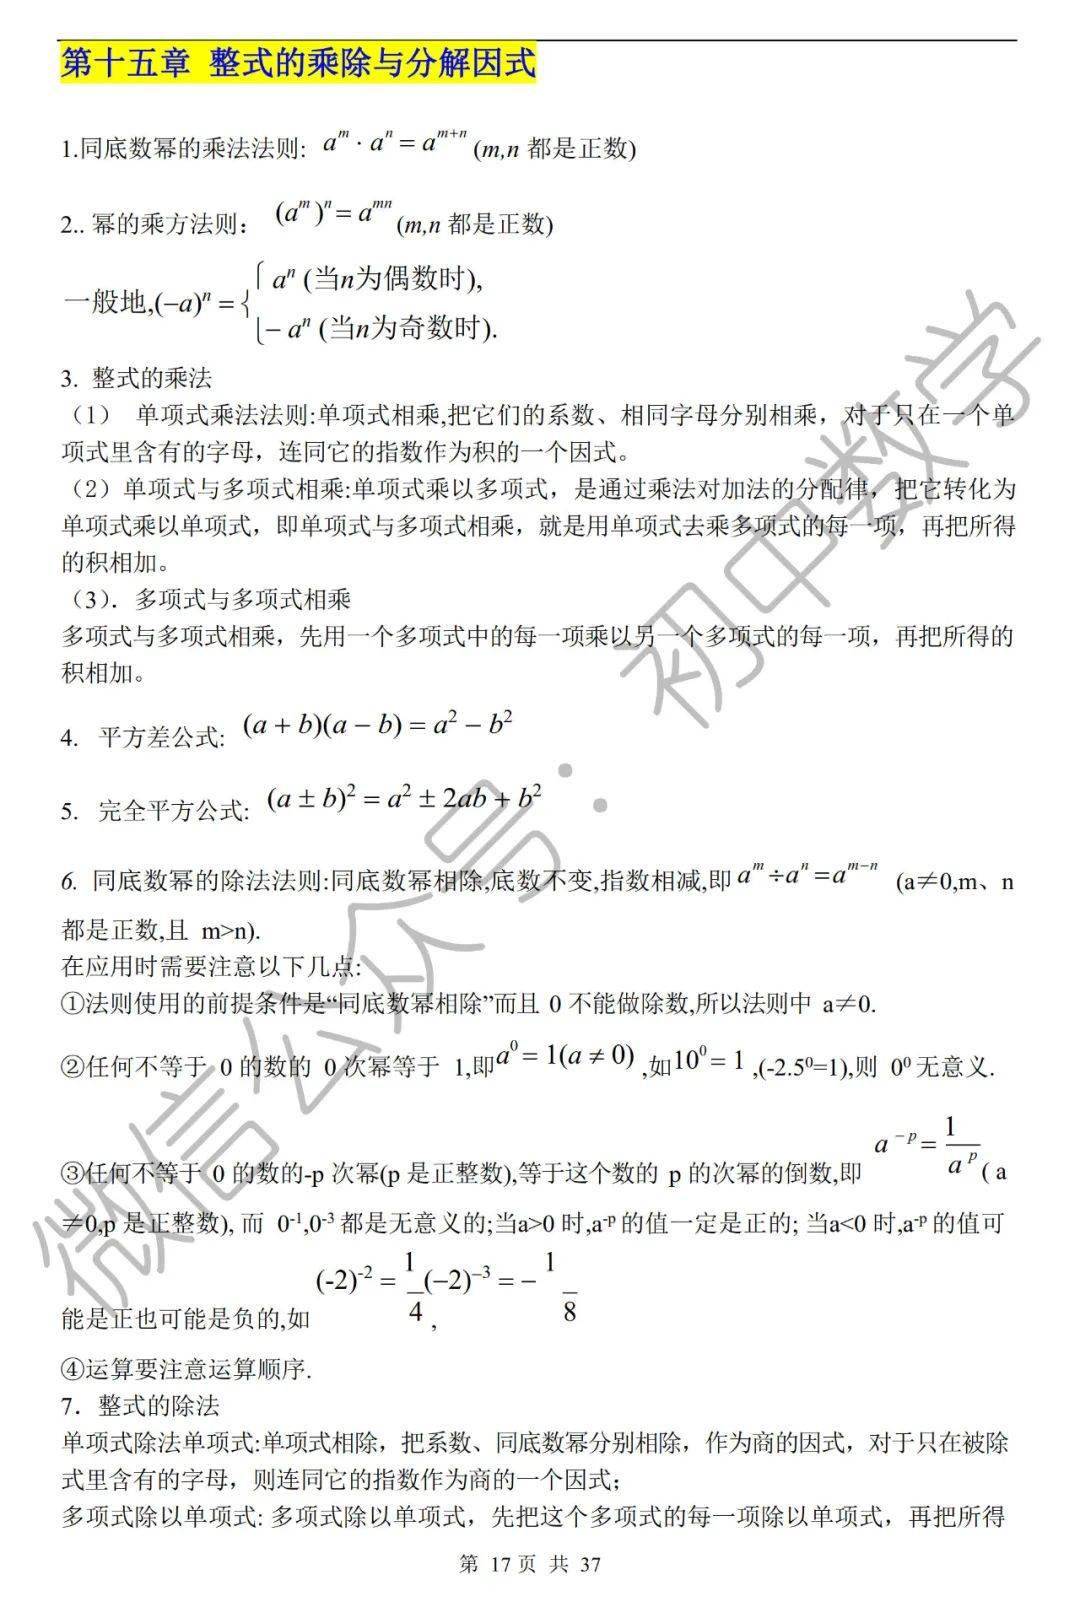 第十五章 整式的乘除与分解因式
1.同底数幂的乘法法则: aᵐ · aⁿ = aᵐ⁺ⁿ (m,n 都是正数)
2.. 幂的乘方法则： (aᵐ)ⁿ = aᵐⁿ (m,n 都是正数)
一般地,(−a)ⁿ = { aⁿ (当n为偶数时),
− aⁿ (当n为奇数时).
3. 整式的乘法
（1） 单项式乘法法则:单项式相乘,把它们的系数、相同字母分别相乘，对于只在一个单
项式里含有的字母，连同它的指数作为积的一个因式。
（2）单项式与多项式相乘:单项式乘以多项式，是通过乘法对加法的分配律，把它转化为
单项式乘以单项式，即单项式与多项式相乘，就是用单项式去乘多项式的每一项，再把所得
的积相加。
（3）．多项式与多项式相乘
多项式与多项式相乘，先用一个多项式中的每一项乘以另一个多项式的每一项，再把所得的
积相加。
4. 平方差公式: (a + b)(a − b) = a² − b²
5. 完全平方公式: (a ± b)² = a² ± 2ab + b²
6. 同底数幂的除法法则:同底数幂相除,底数不变,指数相减,即 aᵐ ÷ aⁿ = aᵐ⁻ⁿ (a≠0,m、n
都是正数,且 m>n).
在应用时需要注意以下几点:
①法则使用的前提条件是“同底数幂相除”而且 0 不能做除数,所以法则中 a≠0.
②任何不等于 0 的数的 0 次幂等于 1,即 a⁰ = 1(a ≠ 0) ,如 10⁰ = 1 ,(-2.5⁰=1),则 0⁰ 无意义.
③任何不等于 0 的数的-p 次幂(p 是正整数),等于这个数的 p 的次幂的倒数,即 a⁻ᵖ = 1/aᵖ ( a
≠0,p 是正整数), 而 0⁻¹,0⁻³ 都是无意义的;当a>0 时,a⁻ᵖ 的值一定是正的; 当a<0 时,a⁻ᵖ 的值可
能是正也可能是负的,如 (-2)⁻² = 1/4 , (−2)⁻³ = − 1/8
④运算要注意运算顺序.
7．整式的除法
单项式除法单项式:单项式相除，把系数、同底数幂分别相除，作为商的因式，对于只在被除
式里含有的字母，则连同它的指数作为商的一个因式；
多项式除以单项式: 多项式除以单项式，先把这个多项式的每一项除以单项式，再把所得
第 17 页 共 37
微信公众号：初中数学